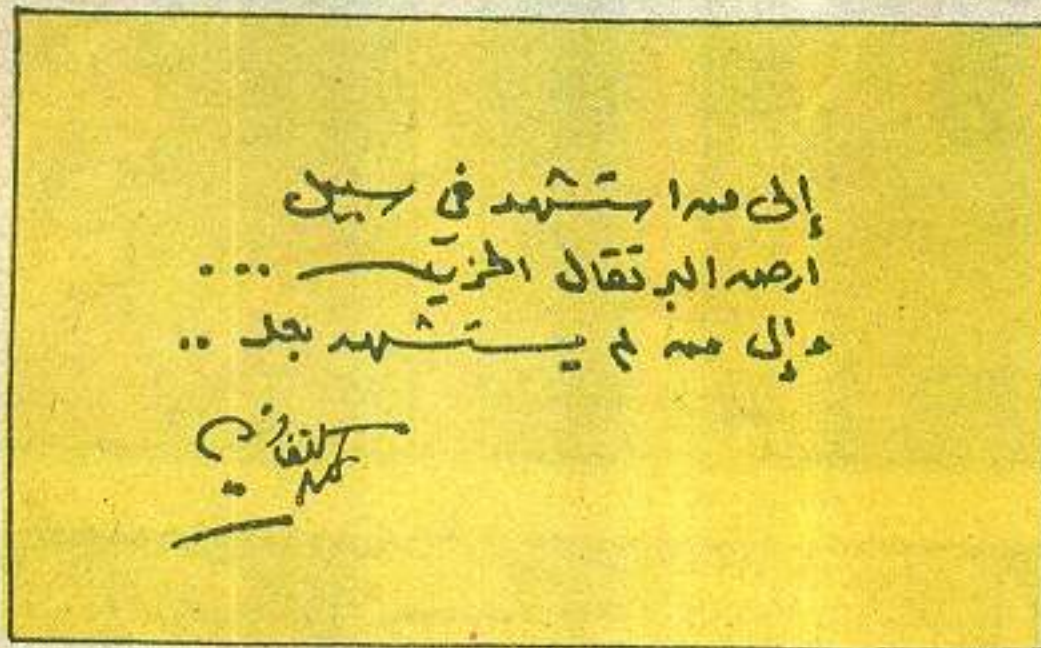 إلى من استشهد في سبيل
ارض البرتقال الحزين ...
وإلى من لم يستشهد بعد ..